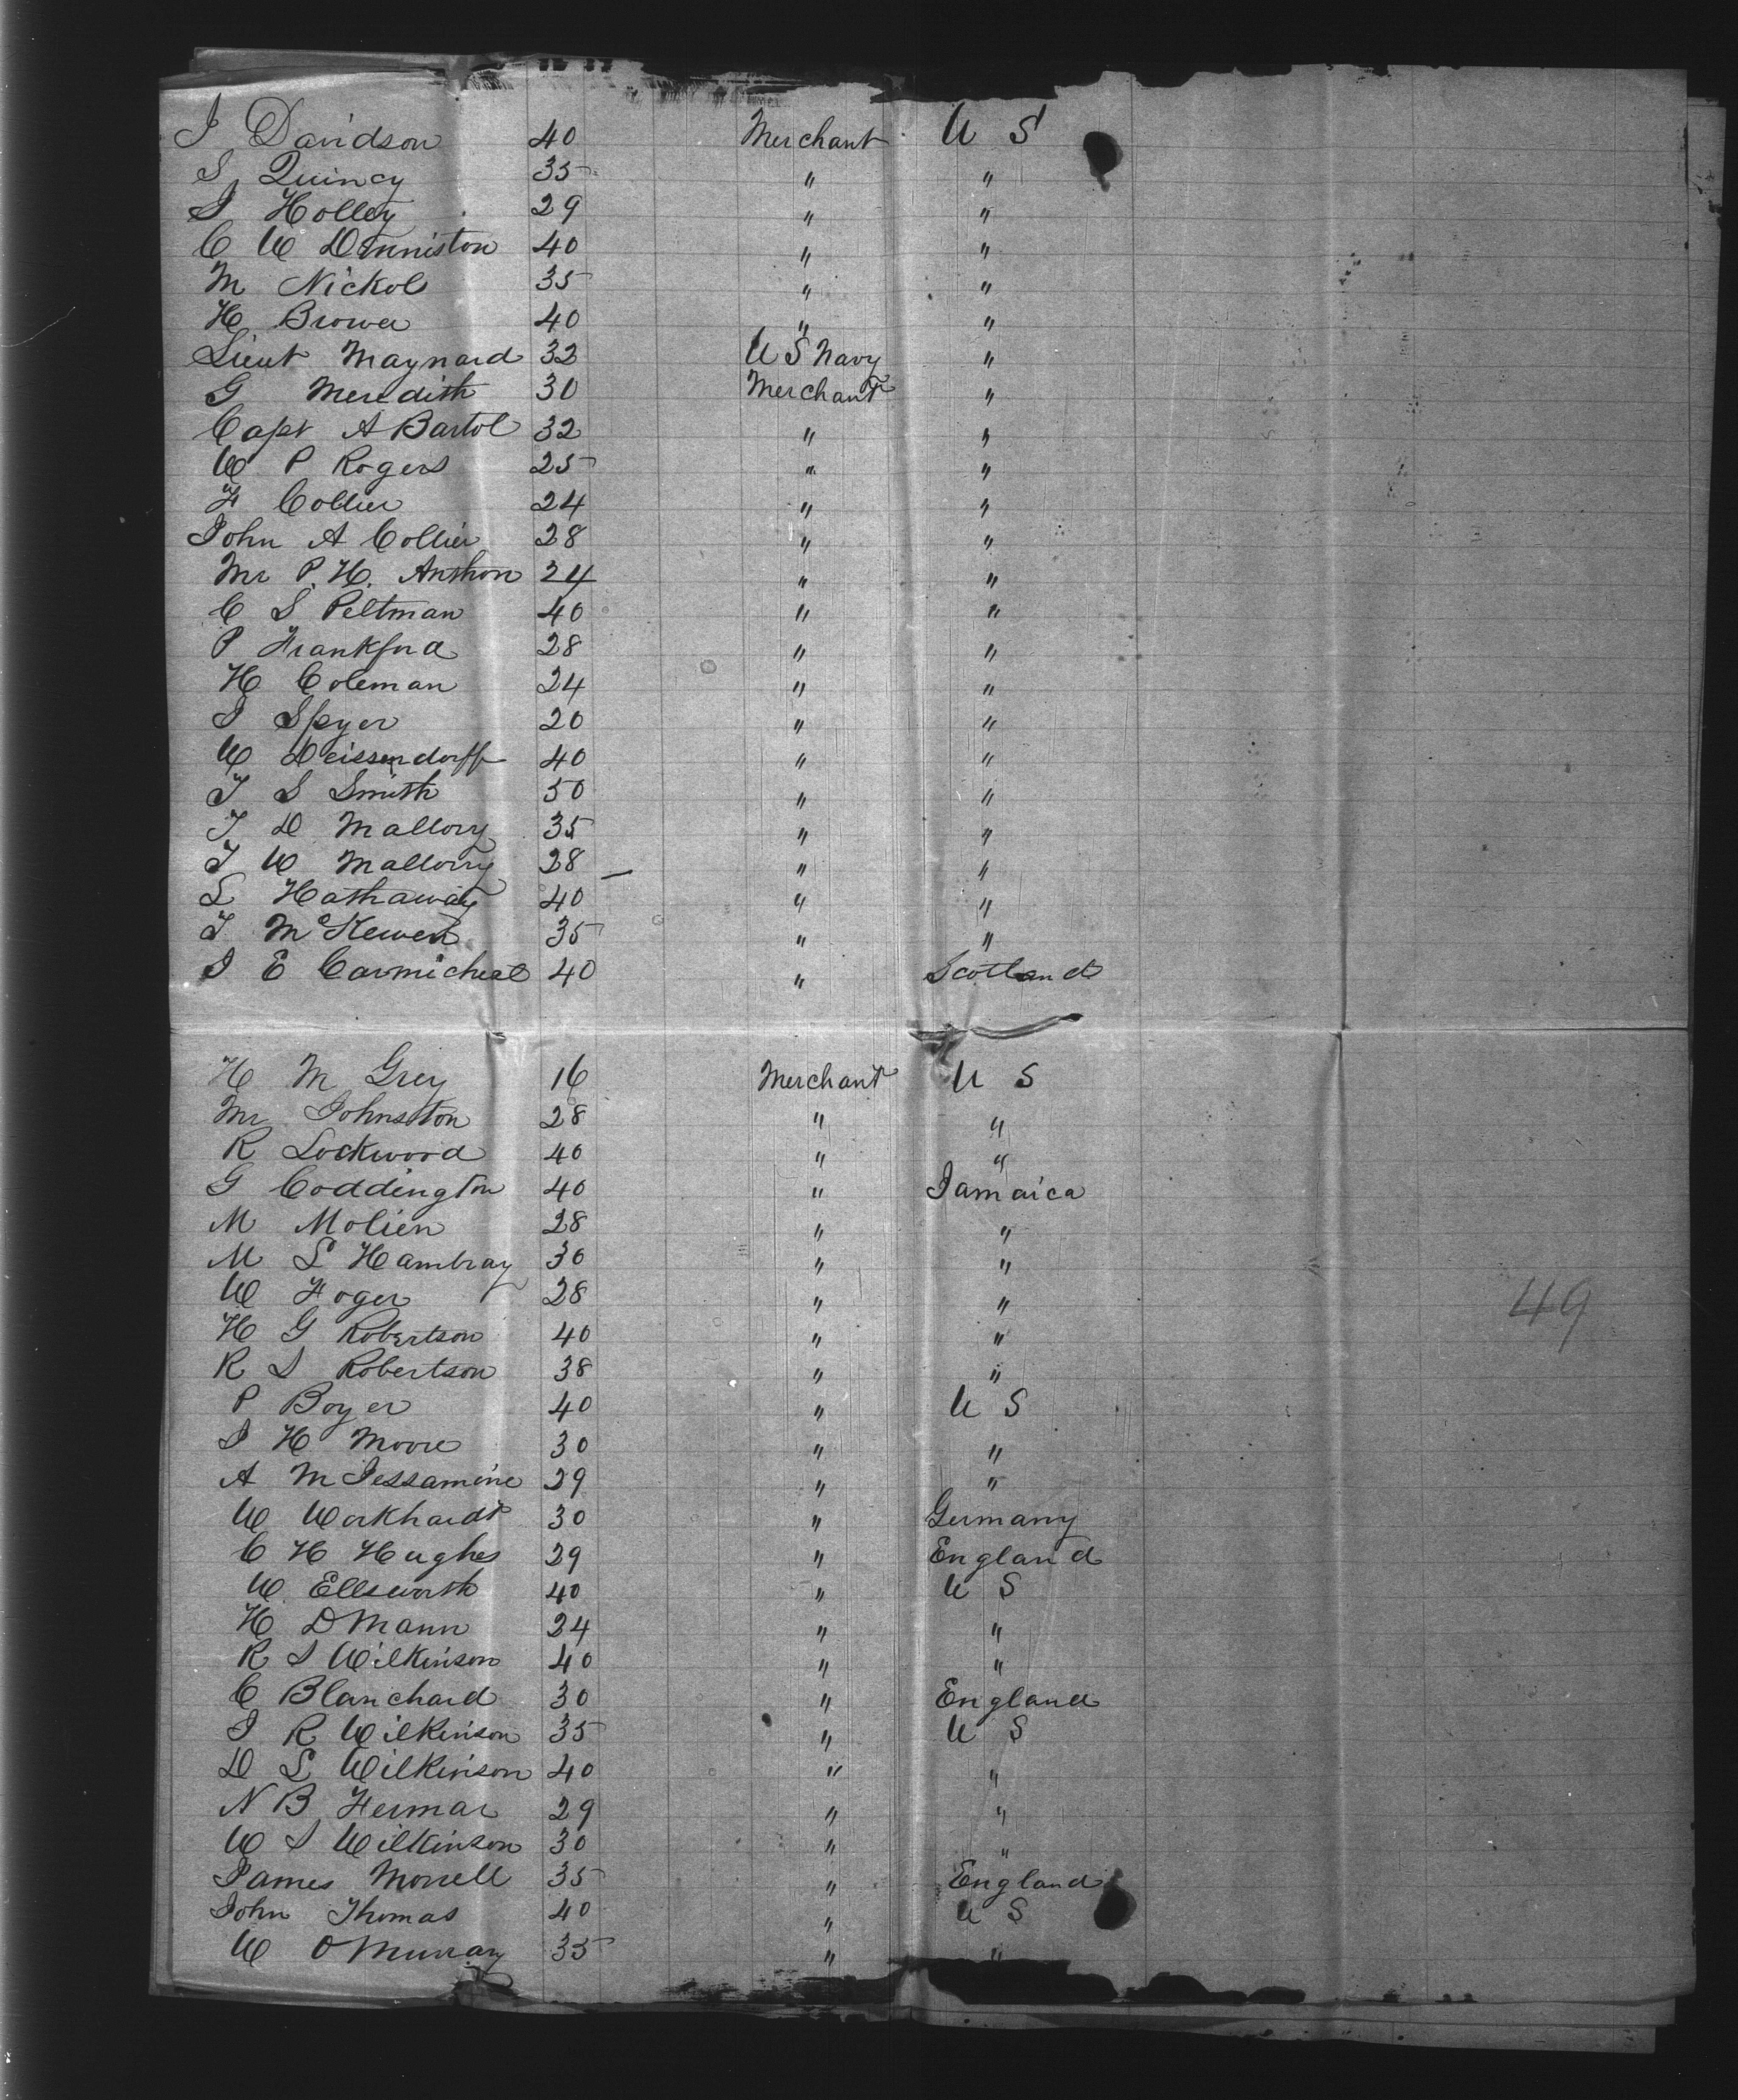 J Davidson 40 Merchant U S
S Quincy 35 " "
J Holley 29 " "
C W Denniston 40 " "
M Nickols 35 " "
H Brower 40 " "
Lieut Maynard 32 U S Navy "
G Meredith 30 Merchant "
Capt A Bartol 32 " "
W P Rogers 25 " "
F Collier 24 " "
John A Collier 28 " "
Mr P. H. Anthon 24 " "
C S Peltman 40 " "
P Frankford 28 " "
H Coleman 24 " "
J Spyer 20 " "
W Deissendorff 40 " "
T S Smith 50 " "
T D Mallory 35 " "
T W Mallorry 28 " "
L Hathaway 40 " "
T McKewen 35 " "
J E Carmicheal 40 " Scotland
H M Grey 16 Merchant U S
Mr Johnston 28 " "
R Lockwood 40 " "
G Coddington 40 " Jamaica
M Molien 28 " "
M L Hambray 30 " "
W Foger 28 " "
H G Robertson 40 " "
R S Robertson 38 " "
P Boyer 40 " U S
J H Moore 30 " "
A M Jessamine 29 " "
W Workhardt 30 " Germany
C H Hughes 29 " England
W Ellsworth 40 " U S
H D Mann 24 " "
R S Wilkinson 40 " "
C Blanchard 30 " England
J R Wilkinson 35 " U S
D L Wilkinson 40 " "
N B Fermar 29 " "
W S Wilkinson 30 " "
James Morrell 35 " England
John Thomas 40 " U S
W O Murray 35 " "
49